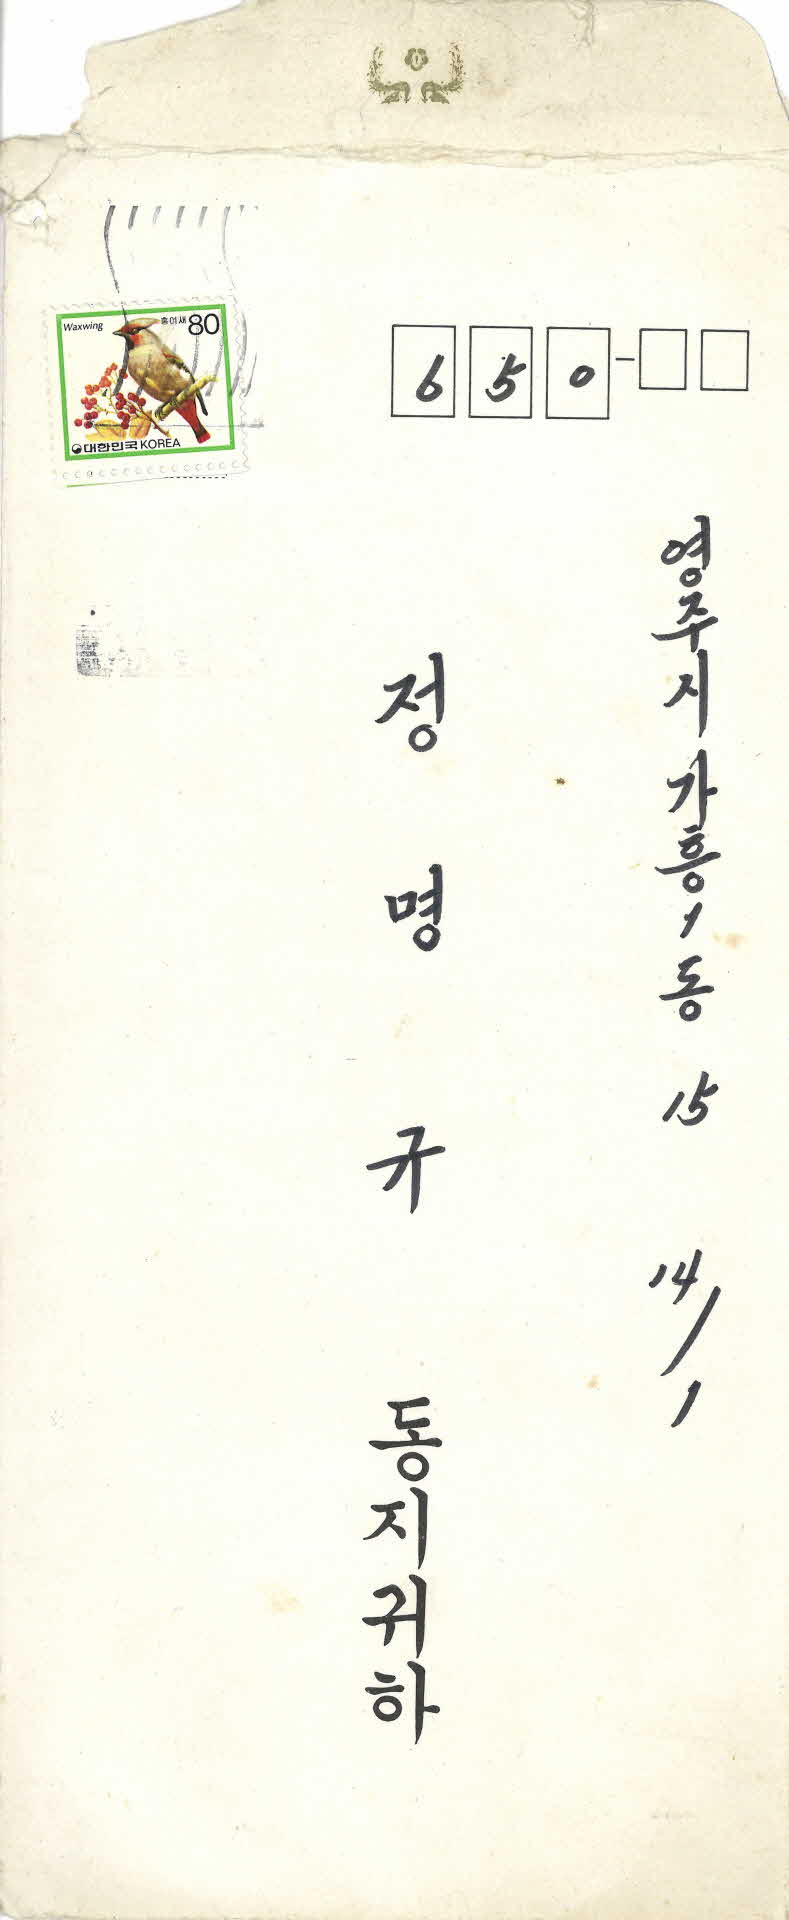 Waxwing 홍여새 80
대한민국 KOREA
650-
영주시 가흥1동 15 14/1
정명규 동지귀하